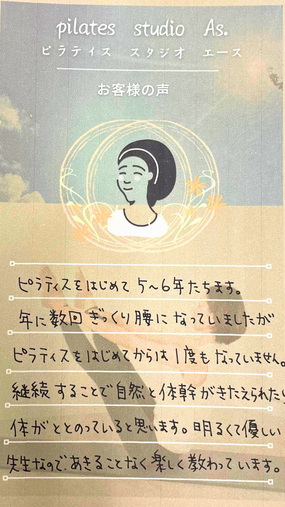 pilates studio As.
ピラティス スタジオ エース
お客様の声
ピラティスをはじめて 5~6年たちます。
年に数回 ぎっくり腰に なっていましたが
ピラティスをはじめてからは 1度も なっていません。
継続 することで自然と体幹がきたえられたり
体がととのっていると思います。明るくて優しい
先生なので、あきることなく楽しく教わっています。